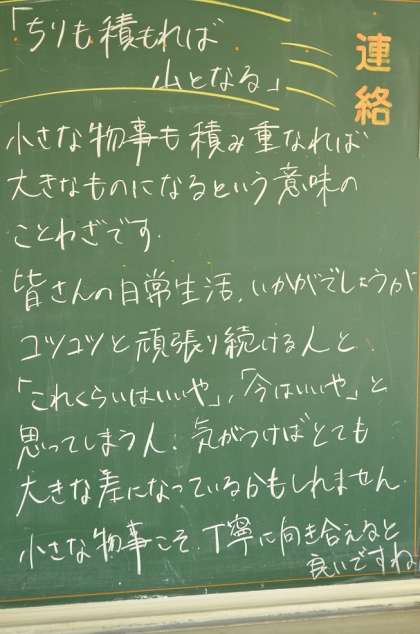 連絡
「ちりも積もれば
山となる」
小さな物事も積み重なれば
大きなものになるという意味の
ことわざです.
皆さんの日常生活,いかがでしょうか
コツコツと頑張り続ける人と,
「これくらいはいいや」,「今はいいや」と
思ってしまう人.気がつけばとても
大きな差になっているかもしれません.
小さな物事こそ,丁寧に向き合えると
良いですね